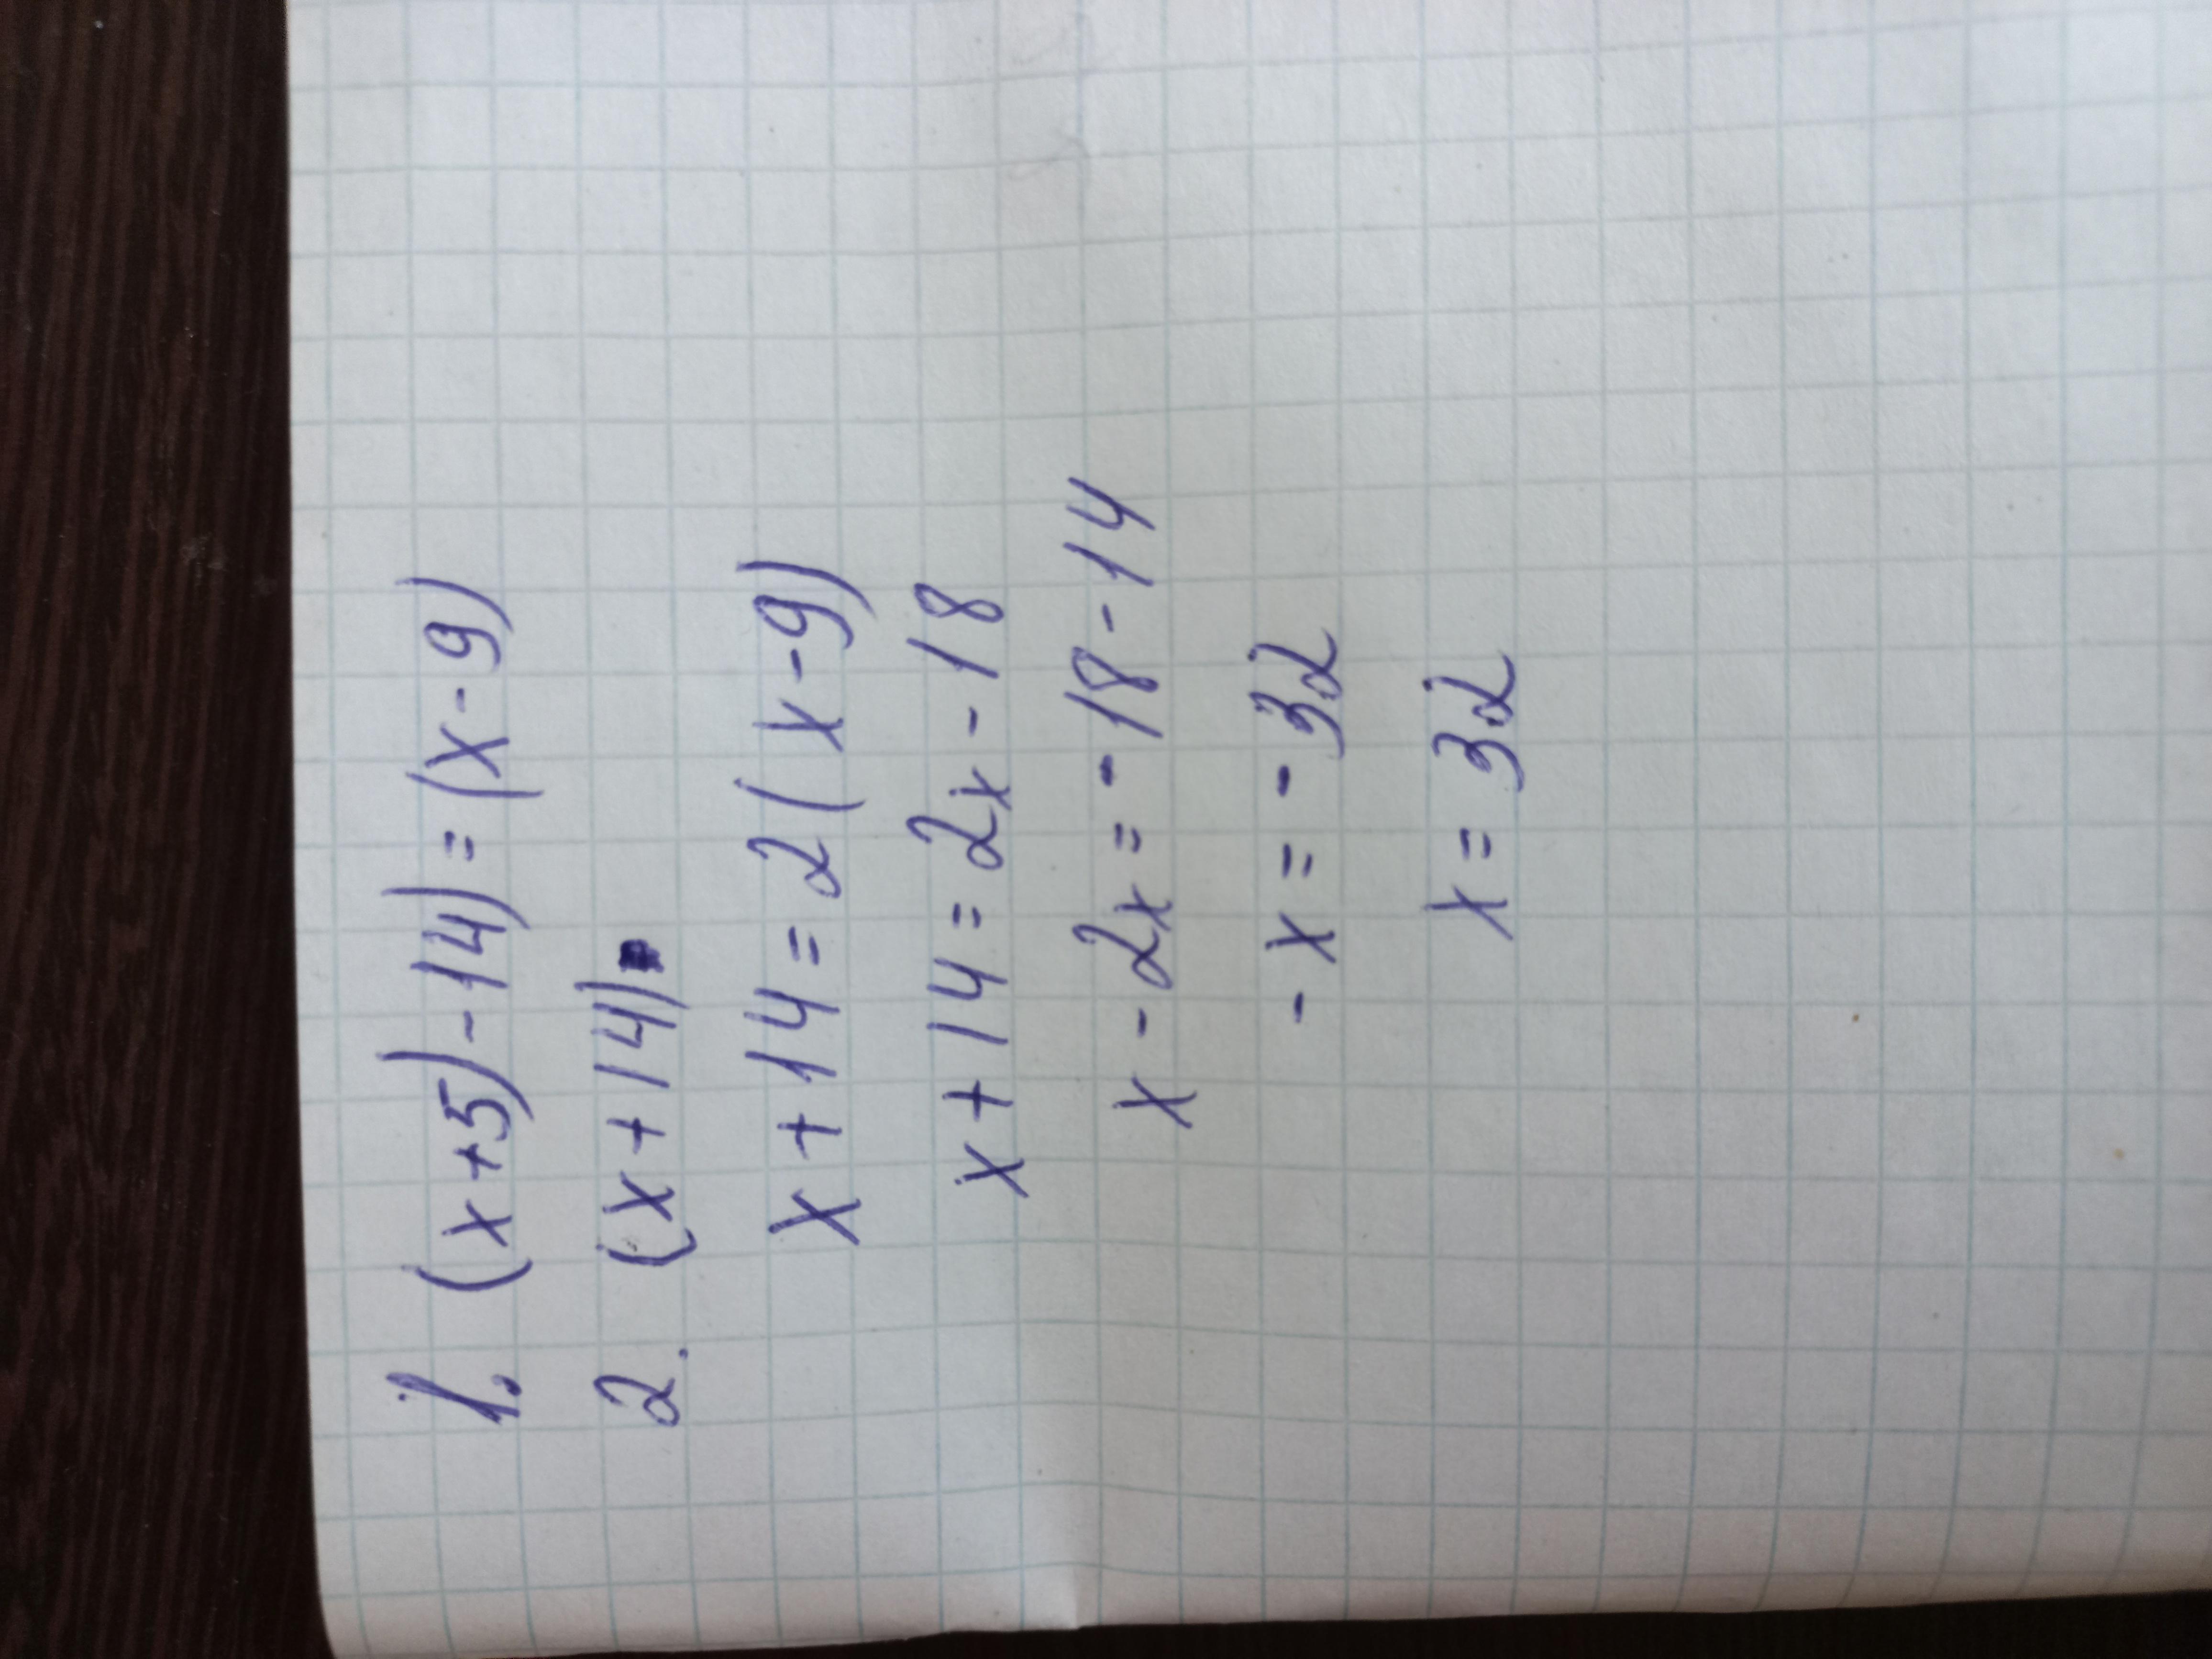 1. (x+5)-14)=(x-9)
2. (x+14)
x+14=2(x-9)
x+14=2x-18
x-2x=-18-14
-x=-32
x=32